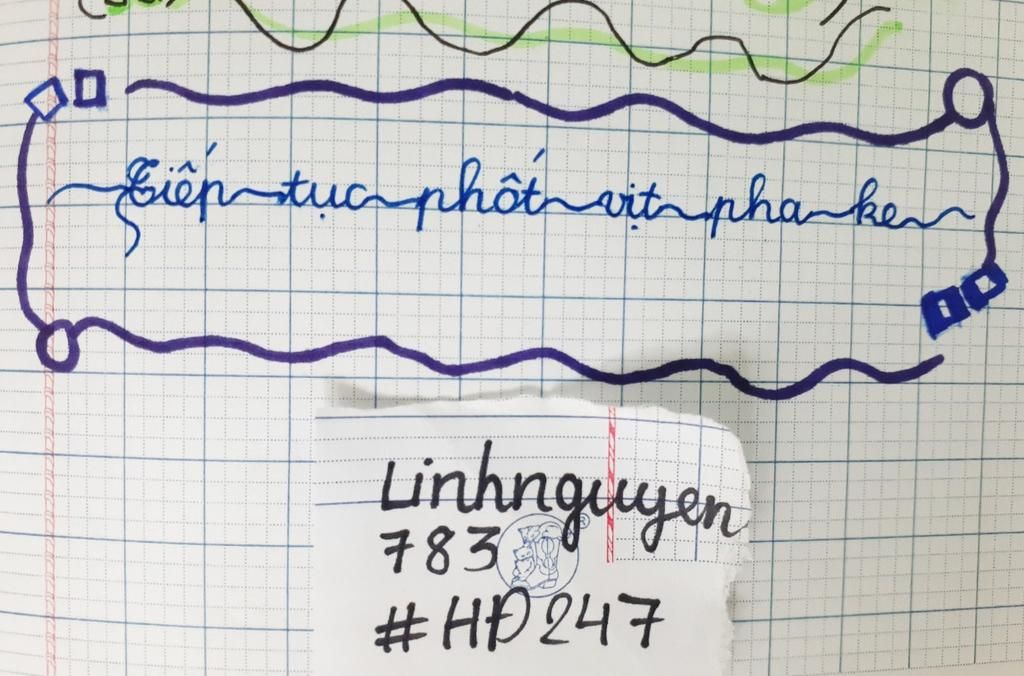 Tiếp tục phốt vịt pha ke
Linhnguyen
783
#HĐ247